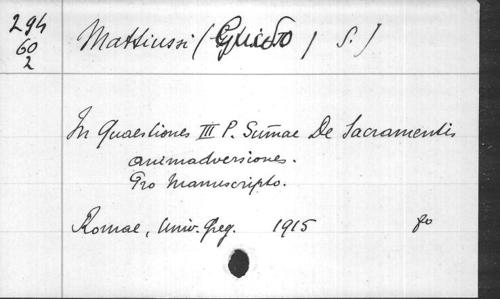 294
60
2
Mattiussi (Guido / S. J
In Quaestiones III P. Sum̄ae De Sacramentis
animadversiones.
Pro Manuscripto.
Romae, Univ. Greg. 1915 fo